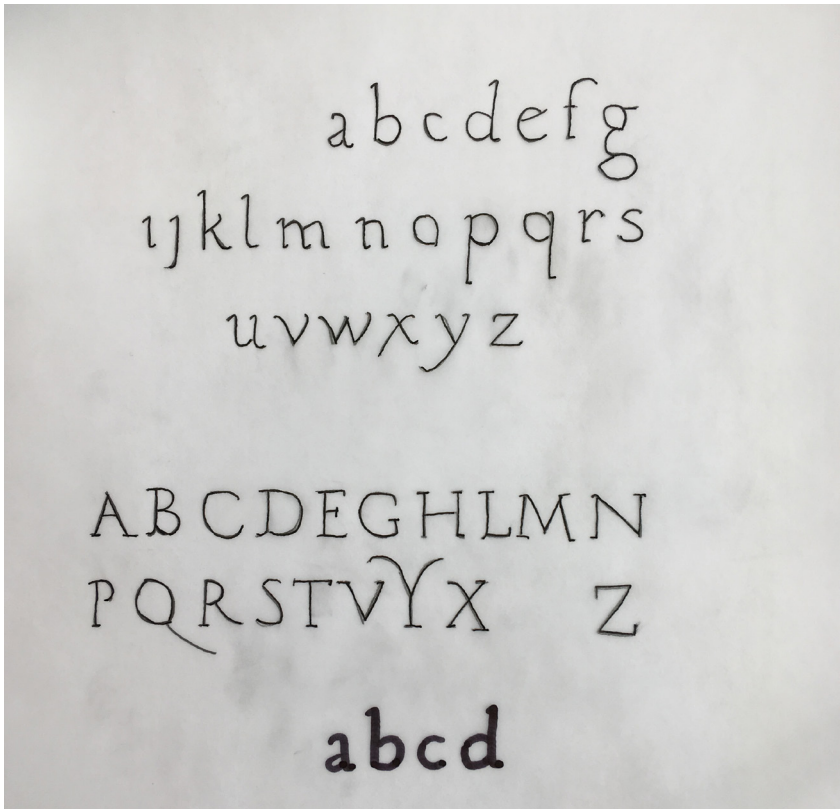 a b c d e f g
ı ȷ k l m n o p q r s
u v w x y z
A B C D E G H L M N
P Q R S T V Y X Z
a b c d